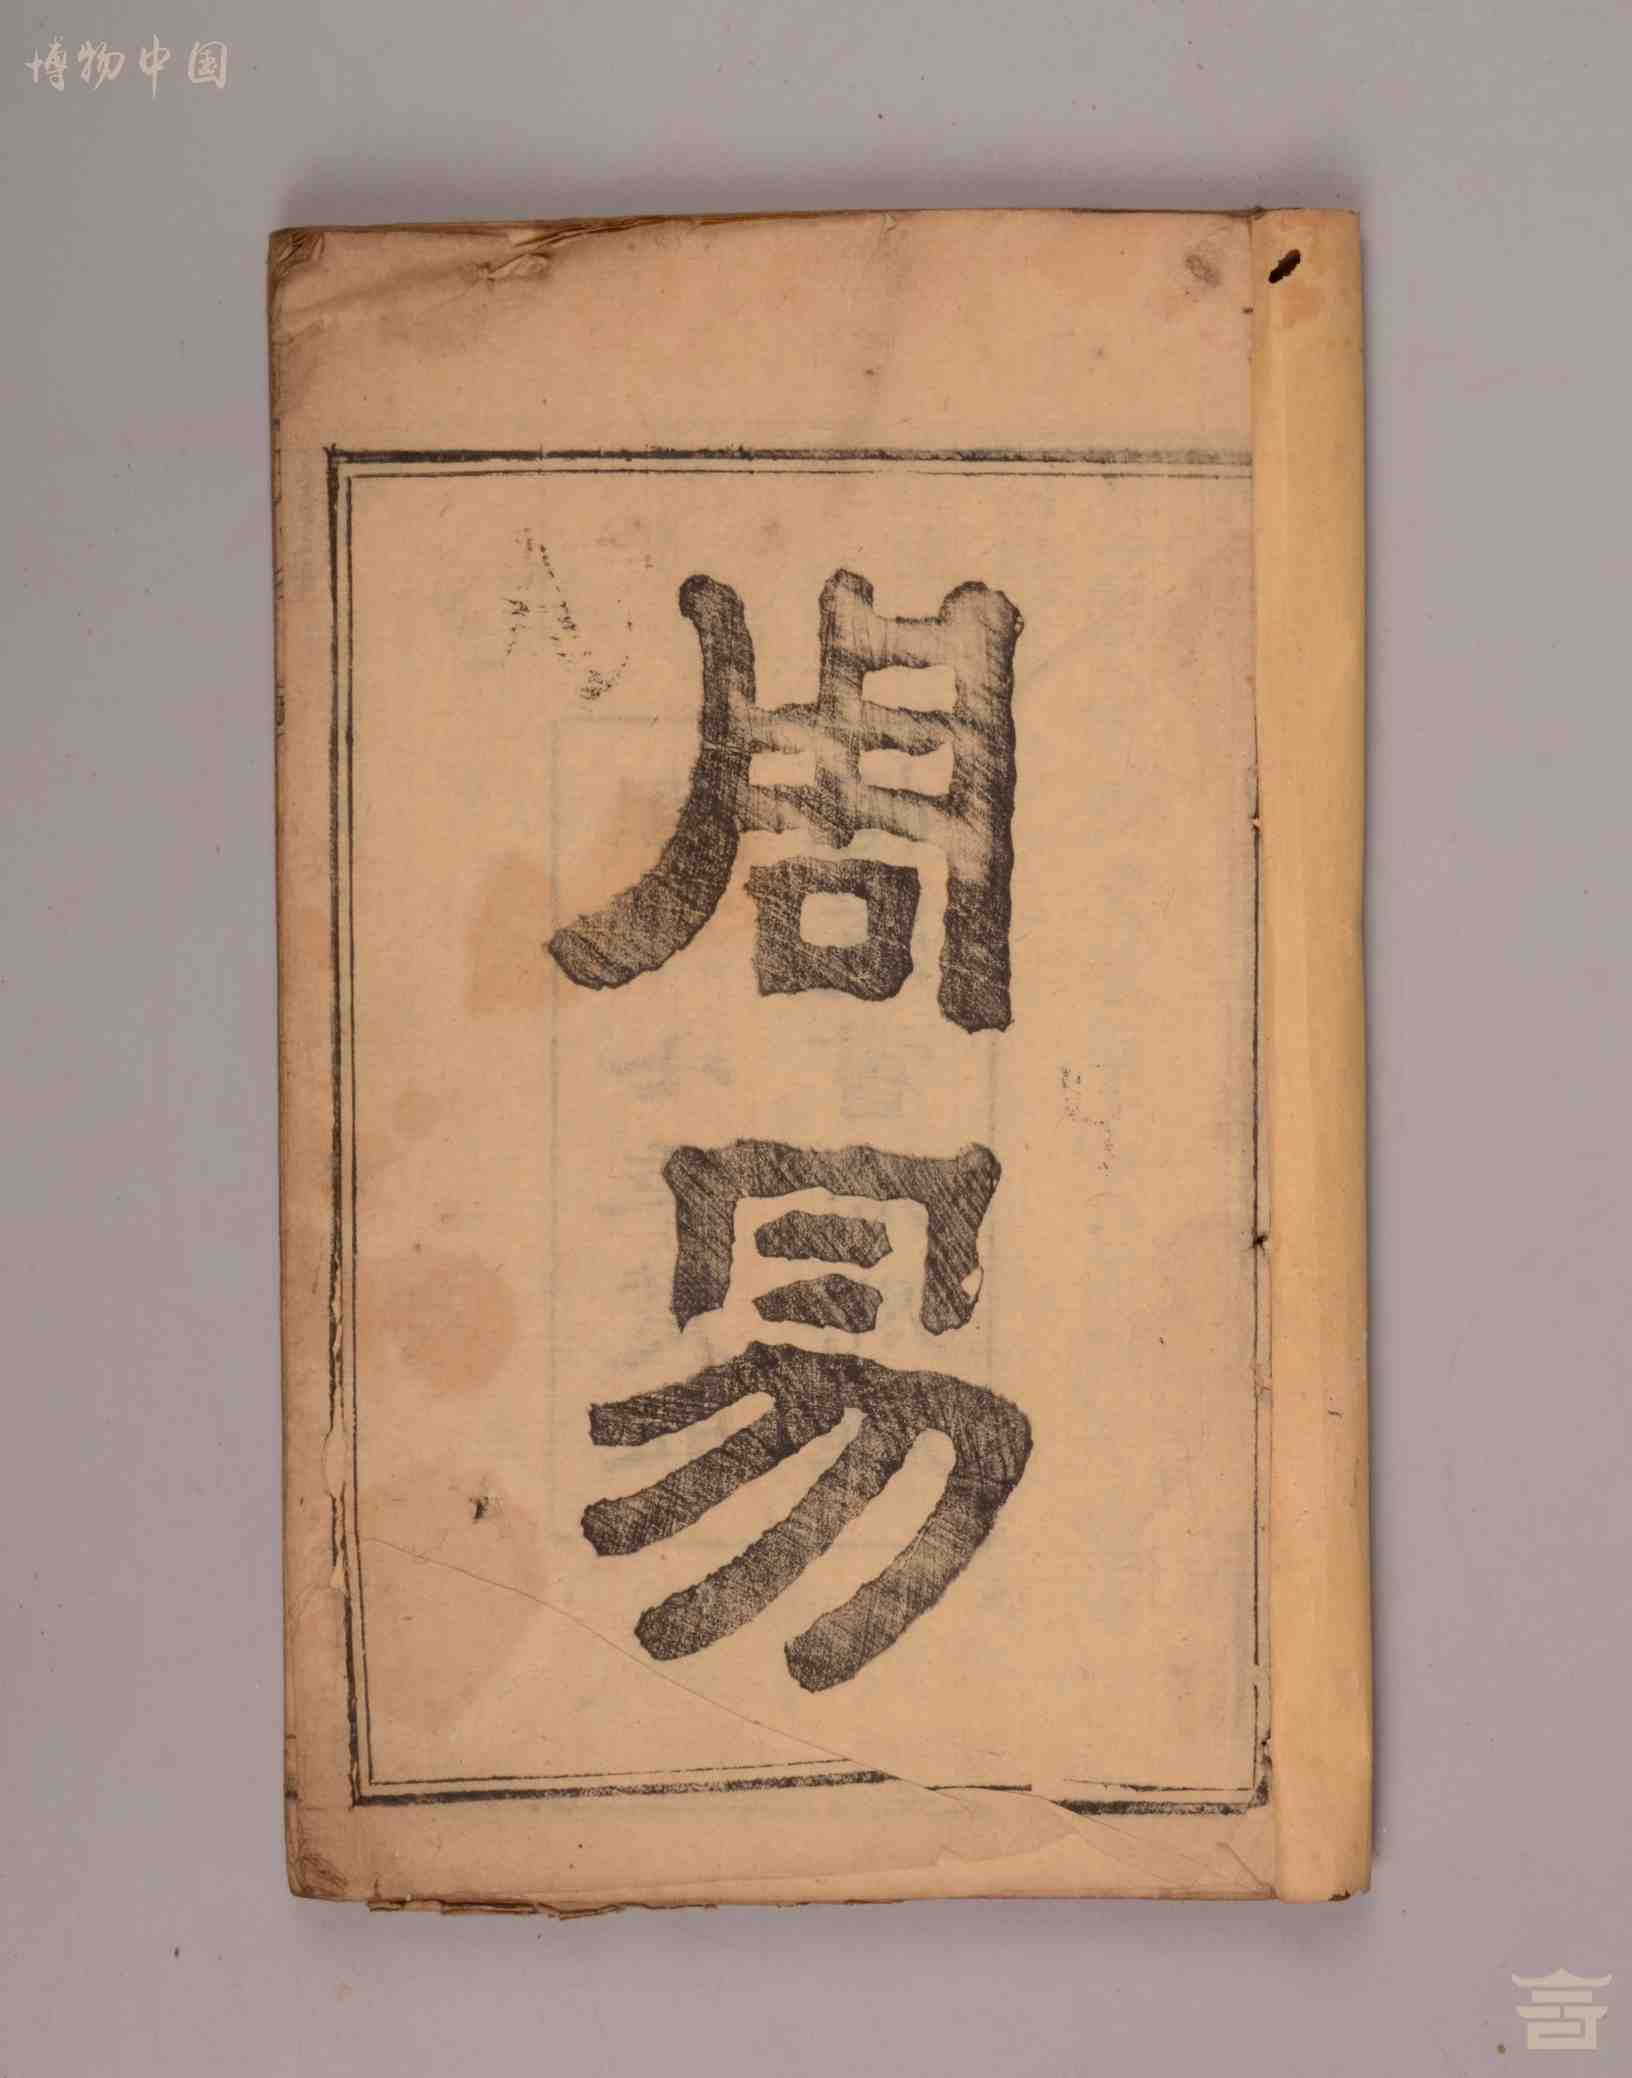 博物中国
周易